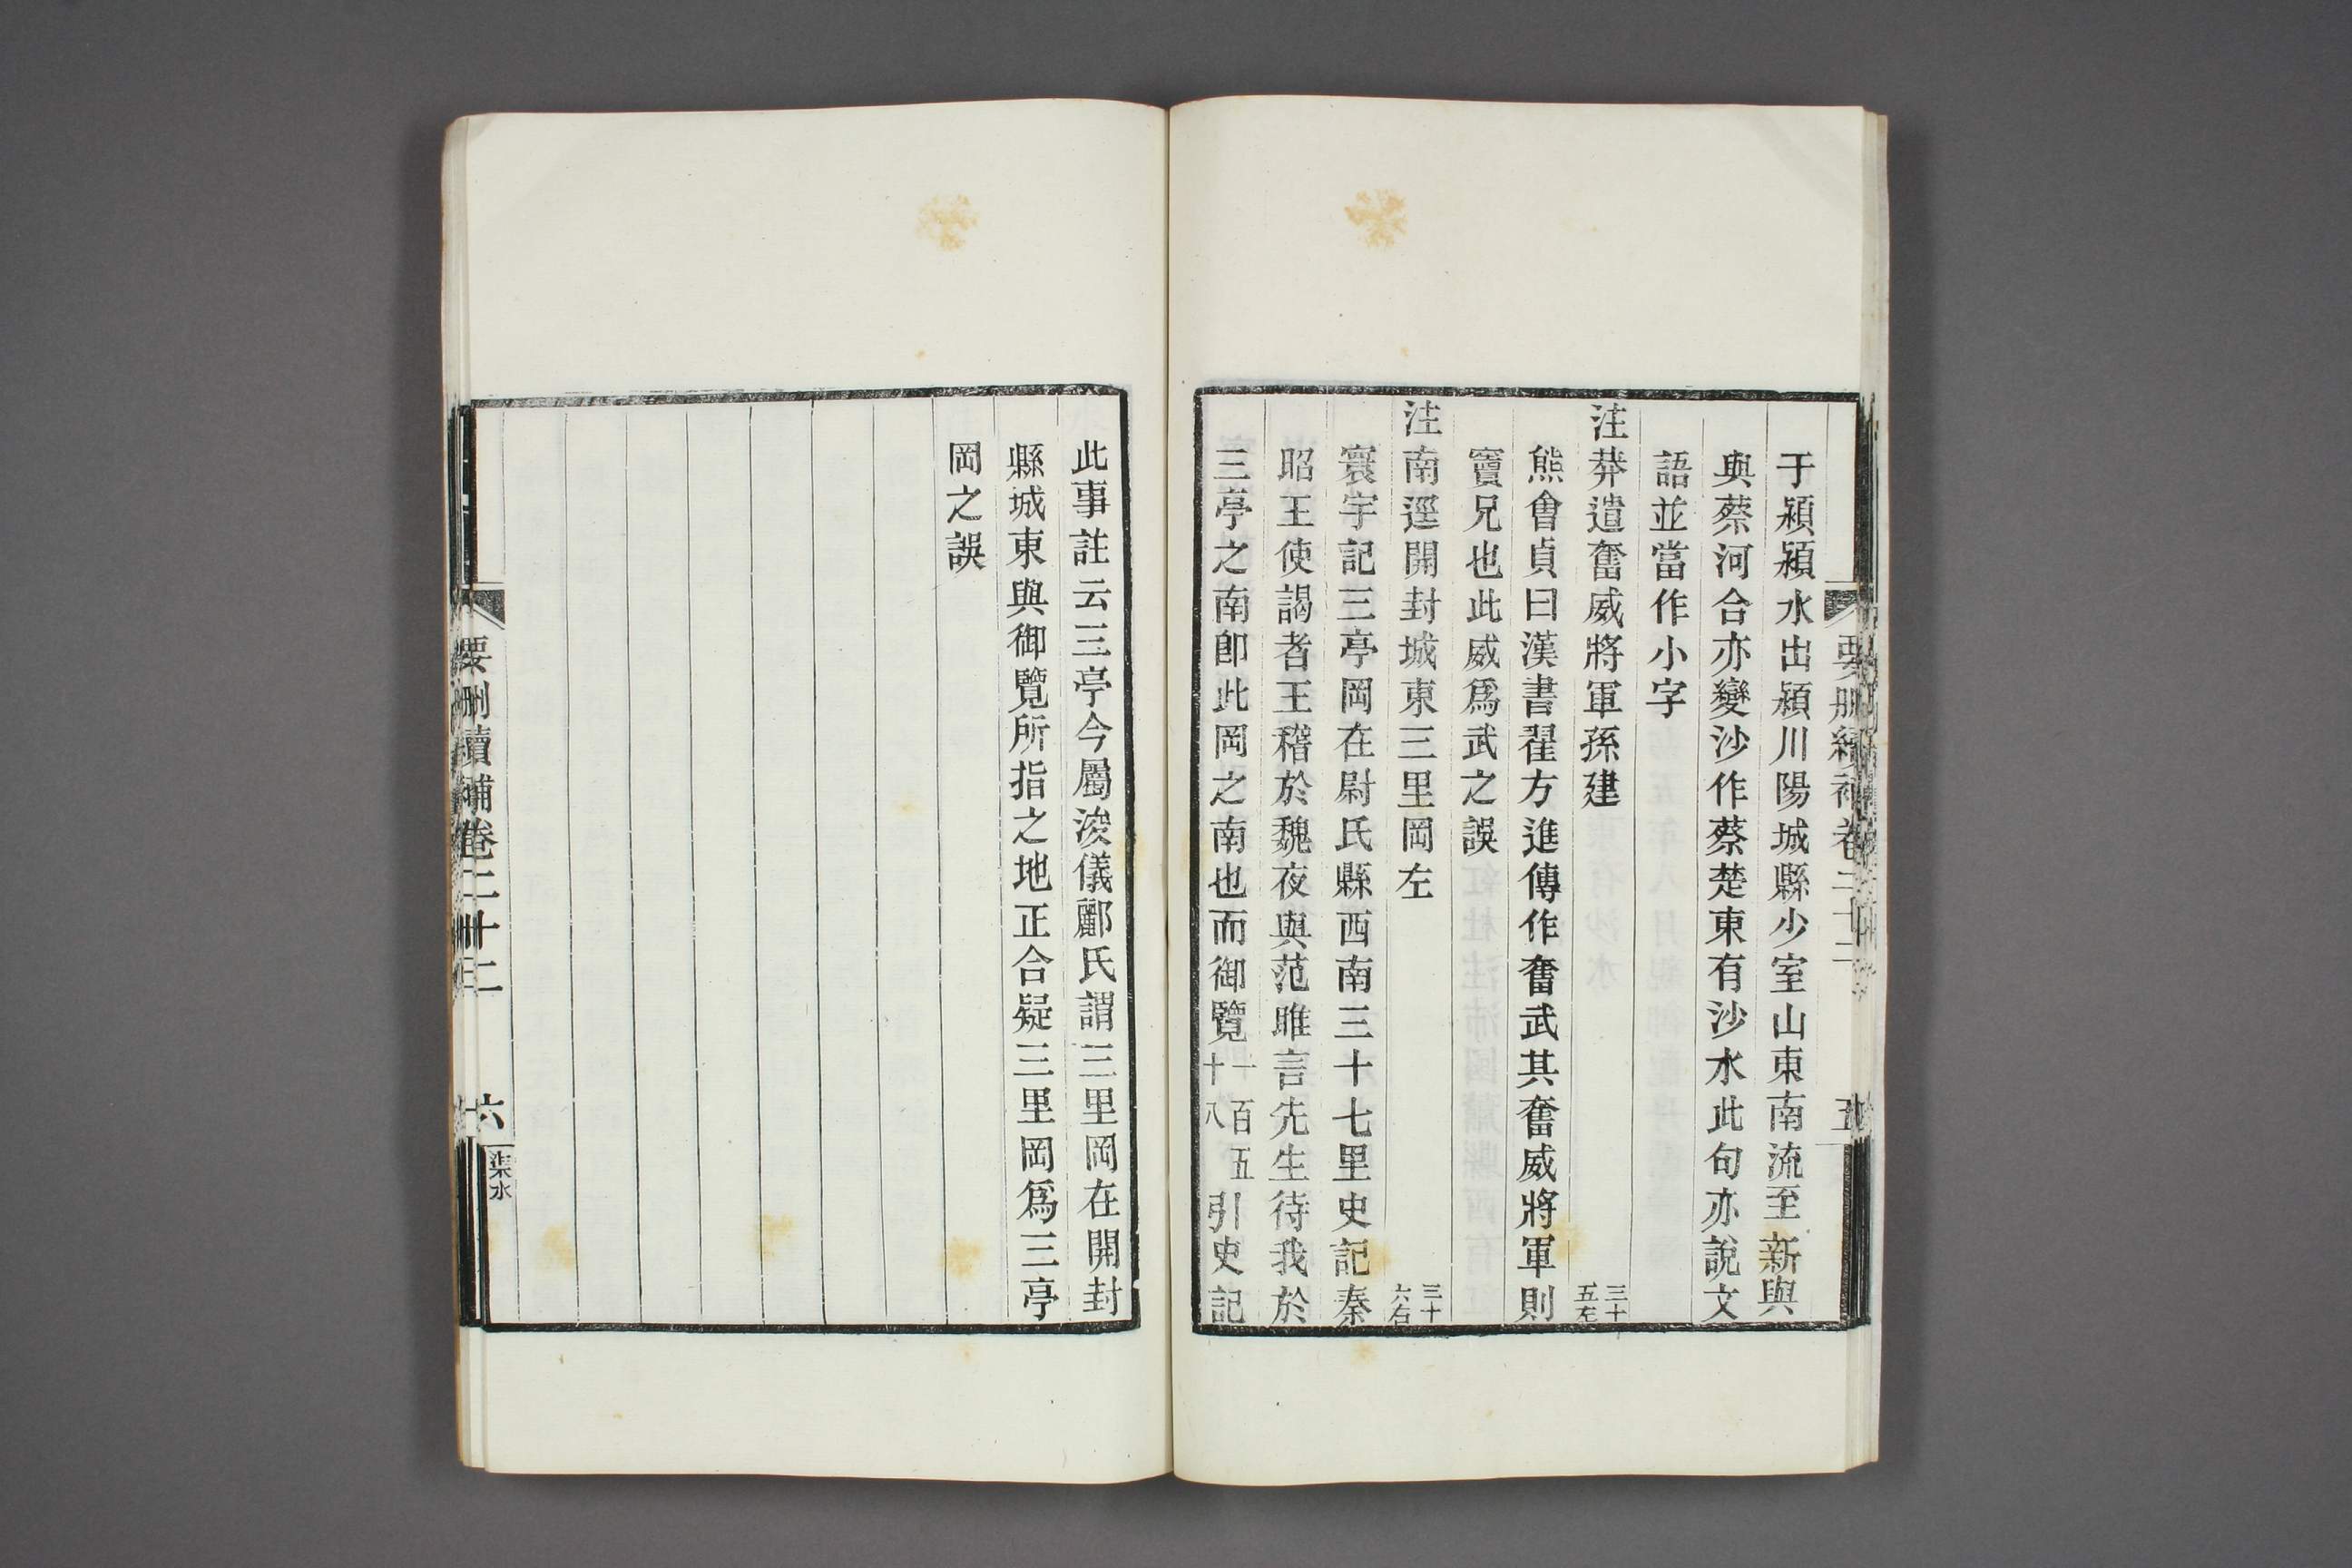 于潁潁水出潁川陽城縣少室山東南流至新與
與蔡河合亦變沙作蔡楚東有沙水此句亦說文
語並當作小字
注莽遣奮威將軍孫建 三十五左
熊會貞曰漢書翟方進傳作奮武其奮威將軍則
竇兄也此威爲武之誤
注南逕開封城東三里岡左 三十六右
寰宇記三亭岡在尉氏縣西南三十七里史記秦
昭王使謁者王稽於魏夜與范雎言先生待我於
三亭之南卽此岡之南也而御覽一百五十八引史記
此事註云三亭今屬浚儀酈氏謂三里岡在開封
縣城東與御覽所指之地正合疑三里岡爲三亭
岡之誤
要刪續補卷二十二
六
渠水